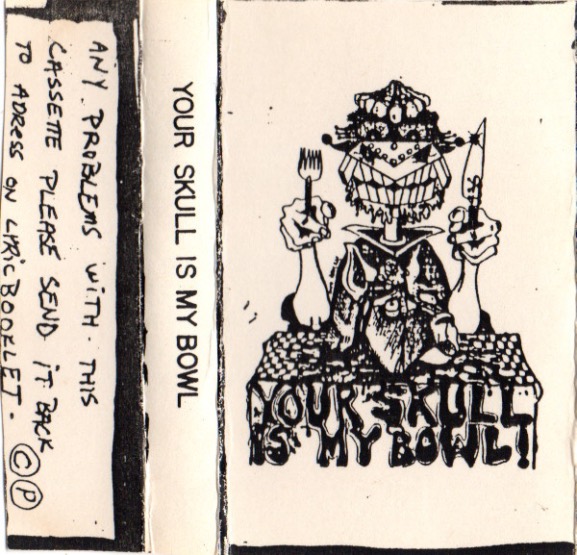 ANY PROBLEMS WITH. THIS
CASSETTE PLEASE SEND IT BACK
TO ADRESS ON LYRIC BOOKLET. © ℗
YOUR SKULL IS MY BOWL
YOUR SKULL
IS MY BOWL!